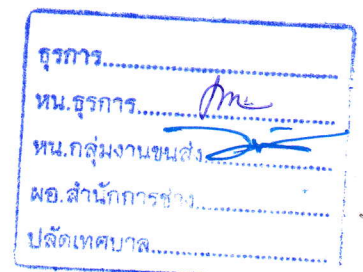 ธุรการ....................
หน.ธุรการ....................
หน.กลุ่มงานขนส่ง....................
ผอ.สำนักการช่าง....................
ปลัดเทศบาล....................